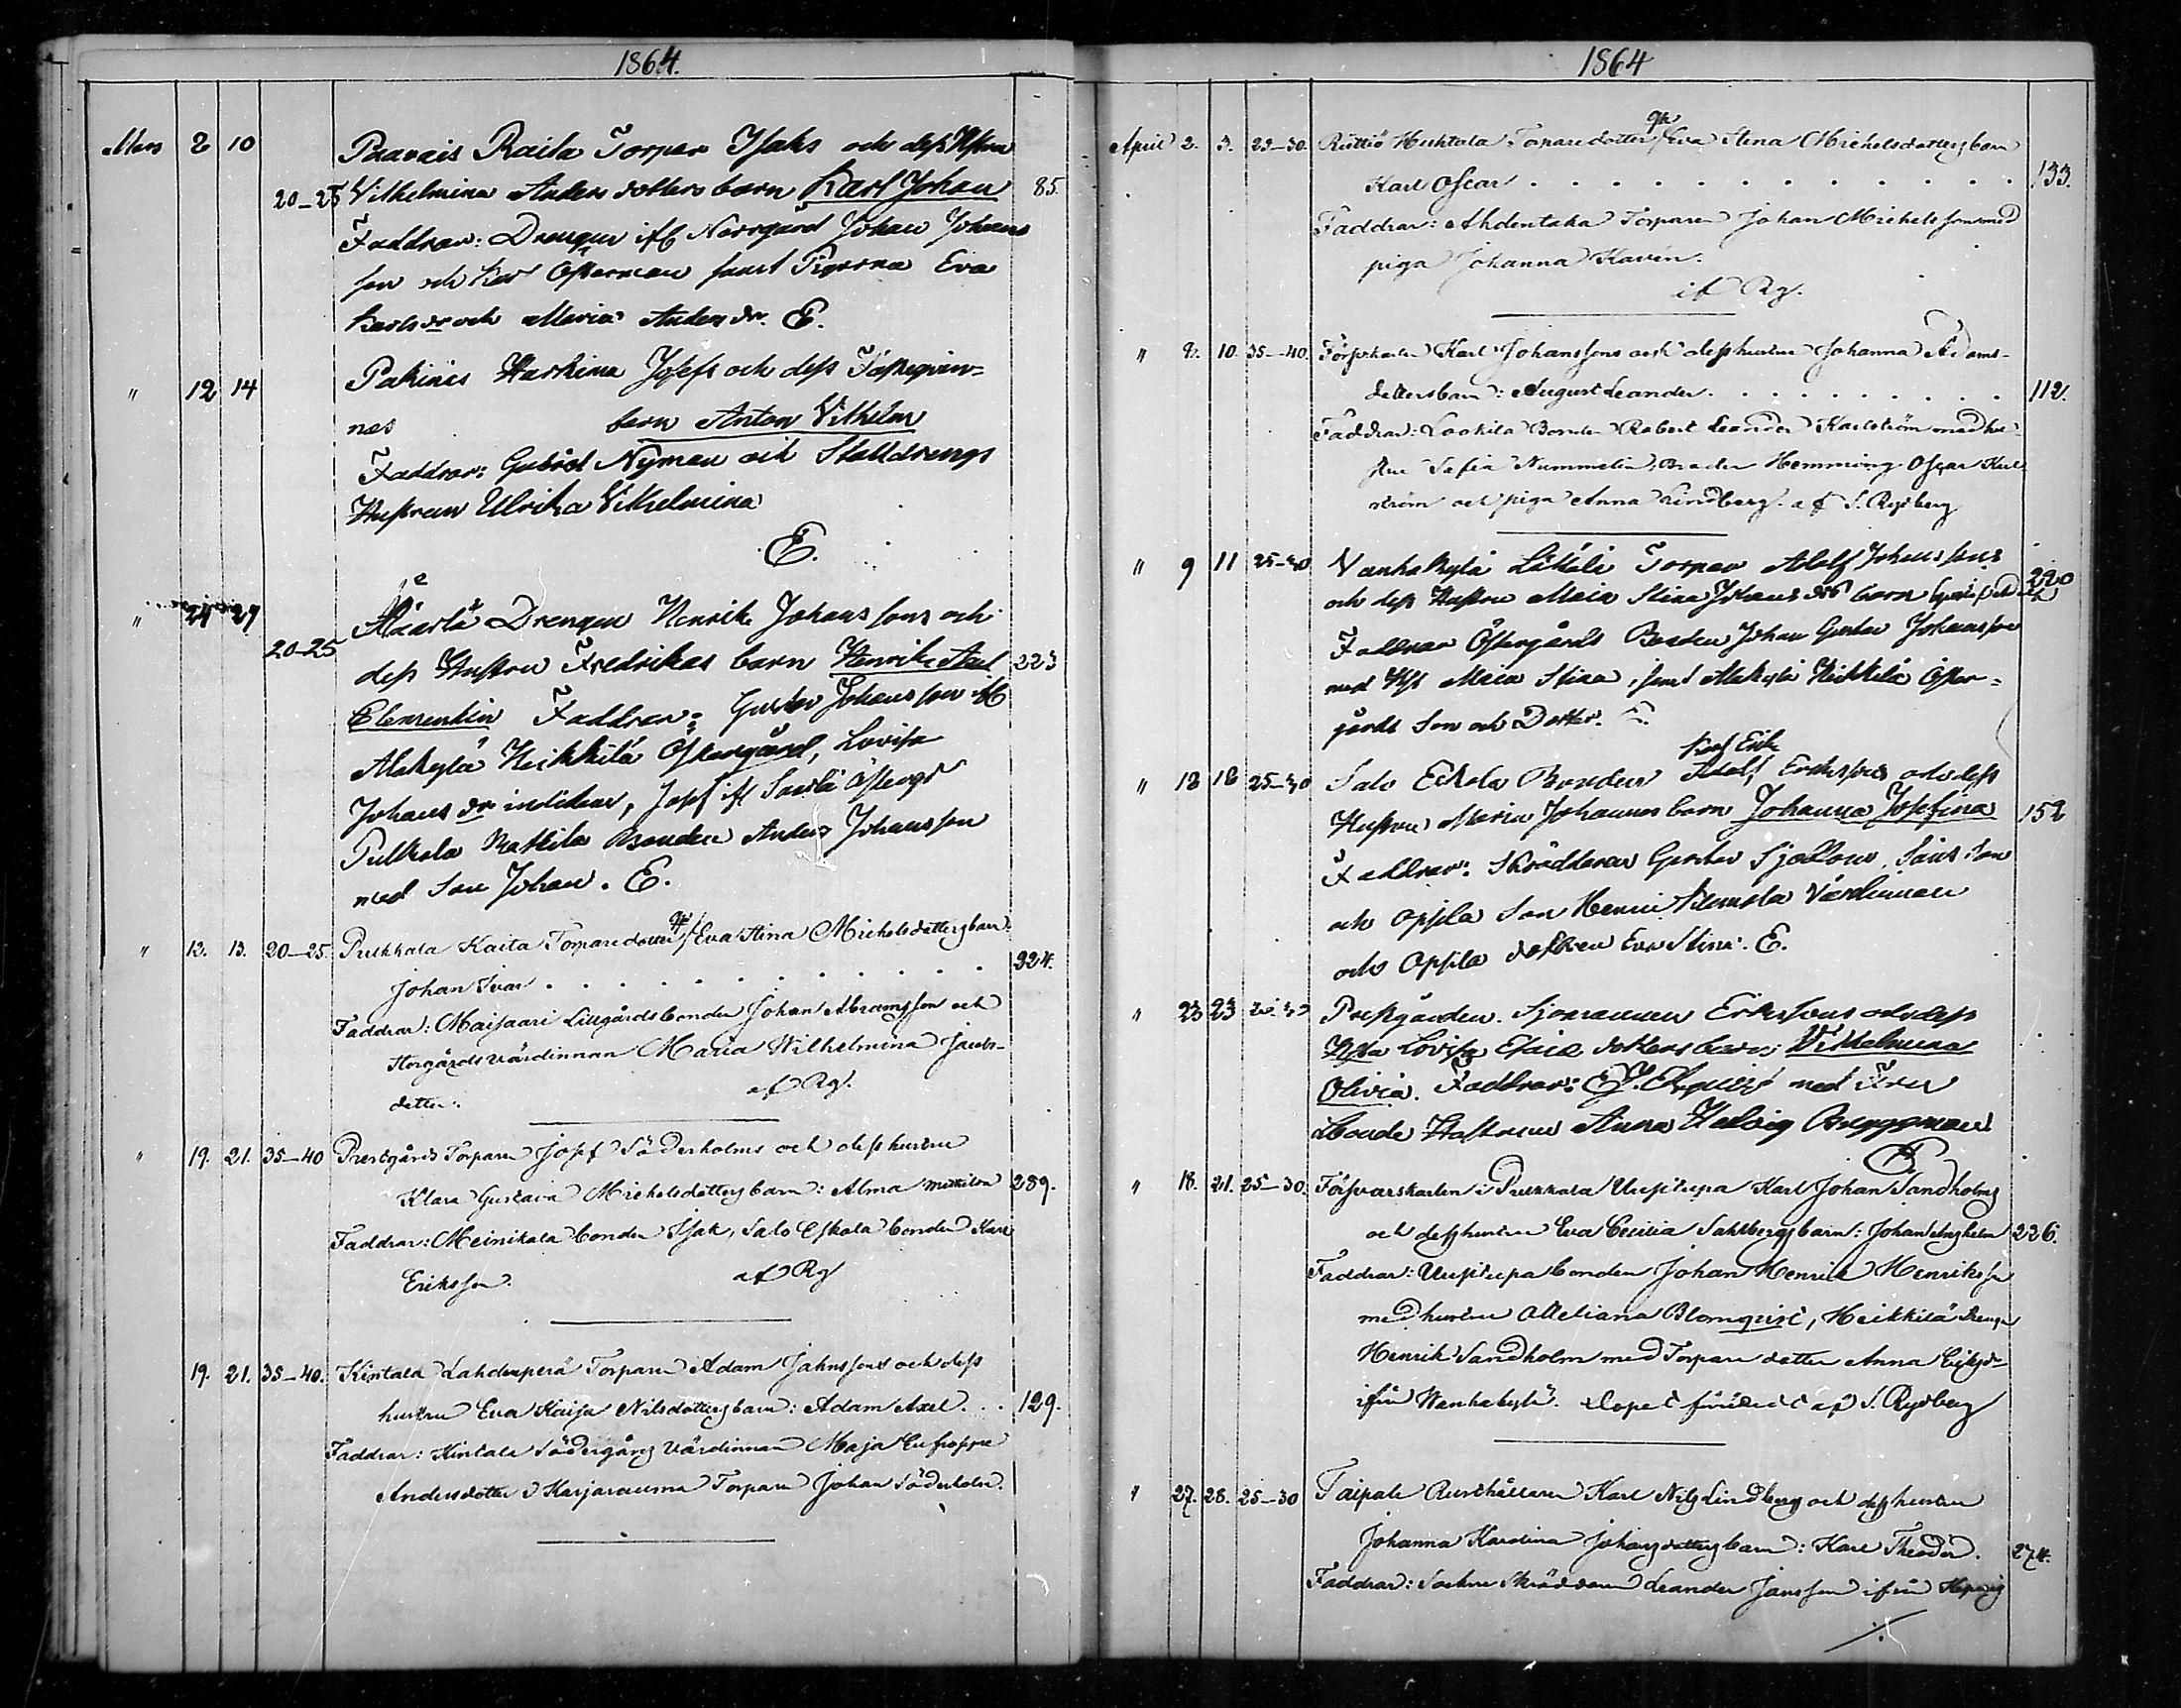 1864.
Mars 2 10 Paavais Raila Torpar Isaks och dess Hustru
20-25 Vilhelmina Anders dotters barn Karl Johan 85.
Faddrar: Drengen ifr Norrgård Johan Johans
son och Karl Österman samt Pigorna Eva
Karlsdr och Maria Andersdr. E.
" 12 14 Pakinais Harkima Josefs och dess Fästeqvin-
nas barn Anton Vilhelm
Faddrar: Nyman och Stalldrengs
Hustrun Ulrika Vilhelmina
E.
" 24 27 Drengen Henrik Johanssons och
20-25 dess Hustru Fredrikas barn Henrik Axel 223
Clementin Faddrar: Gustav Johansson ifr
Alakylä Heikkilä Östergård, Lovisa
Johans dr , Josef ifr
Pulkola Mattila Bonden Anders Johansson
med Son Johan. E.
" 12. 13. 20-25. Pulkkala Kaita Torparedotter Eva Stina Michelsdotters barn
Johan Ivar . . . . . . . . . 324.
Faddrar: Maisaari Lillgårds bonden Johan Abramsson och
Storgårds värdinnan Maria Wilhelmina Jacobs-
dotter. af Rg.
" 19. 21. 35-40 Prestgårds Torparen Josef Söderholms och dess hustru
Klara Gustava Michelsdotters barn: Alma 289.
Faddrar: Meinikala bonden Isak, Salo Eskola bonden Karl
Eriksson. af Rg
19. 21. 35-40. Kintala Lahdenperä Torparen Adam Jahnssons och dess
hustru Eva Kaisa Nilsdotters barn: Adam Axel. . . 129.
Faddrar: Kintala Södergårds värdinnan Maja
Andersdotter o Karjarauma Torparen Johan Söderholm.
1864
April 2. 3. 25-30. Ruttiö Huhtala Torparedotter Eva Stina Michelsdotters barn
Karl Oscar . . . . . . . . . . . 133.
Faddrar: Ahdentaka Torparen Johan Michelsson med
piga Johanna Kavén.
af Rg.
" 9. 10. 35-40. Karl Johanssons och dess hustru Johanna Adams-
dotters barn: August Leander. . . . . . . . . 112.
Faddrar: Laokila Bonden Robert Leander Karlström med hu-
stru Sofia Nummelin, Brodern Hemming Oscar Karl-
ström och piga Anna Lindberg. af S. Rydberg
" 9 11 25-30 Vanhakylä Torpar Adolf Johanssons
och dess Hustru Maia Stina Johans drs barn 220
Faddrar Östergårds Bonden Johan Gustav Johansson
med Hst Maia Stina, samt Alakylä Heikkilä Öster-
gårds Son och Dotter. E.
Karl Erik
" 18 18 25-30 Salo Eskola Bonden Adolf Erikssons och dess
Hustru Maria Johannes barn Johanna Josefina 152
Faddrar: Skräddaren Gustav Son
och Oppila Son Henric Värdinnan
och Oppila dottren Eva Stina. E.
" 23 23 Prestgården. Sjömannen Erikssons och dess
Hstu Lovisa Esaias dotters barn Vilhelmina
Olivia. Faddrar: med Fru
Hustrun Anna Helvig Bryggman
E
" 18. 21. 25-30. Försvarskarlen i Pulkkala Uusitupa Karl Johan Sandholms
och dess hustru Eva Cecilia Sahlbergs barn: Johan Anshelm 226.
Faddrar: Uusitupa bonden Johan Henrik Henriksson
med hustru Blomqvist, Heikkilä Drengen
Henrik Sandholm med Torpare dotter Anna Eriksdr
ifrån Wanhakylä. Dopet förrättadt af S. Rydberg
" 27. 28. 25-30 Taipale Rusthållaren Karl Nils Lindbergs och dess hustru
Johanna Karolina Johansdotters barn: Karl Theodor. 274.
Faddrar: Sockne Skräddaren Leander Jansson ifrån
./.